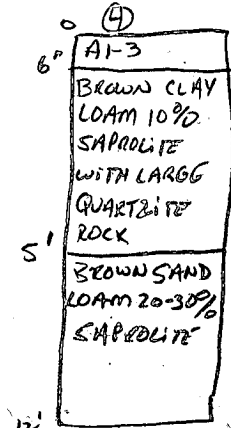 0 4
A1-3
6"
BROWN CLAY
LOAM 10%
SAPROLITE
WITH LARGG
QUARTZITE
ROCK
5'
BROWN SAND
LOAM 20-30%
SAPROLITE